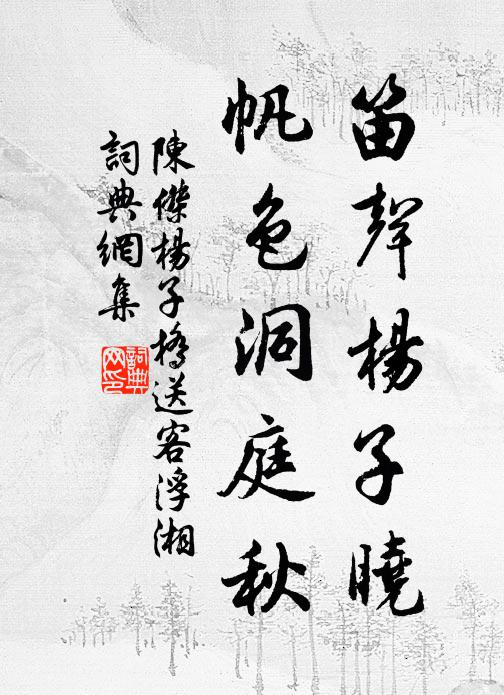 笛聲楊子曉
帆色洞庭秋
陳傑楊子橋送客浮湘
詞典網集
詞典网印